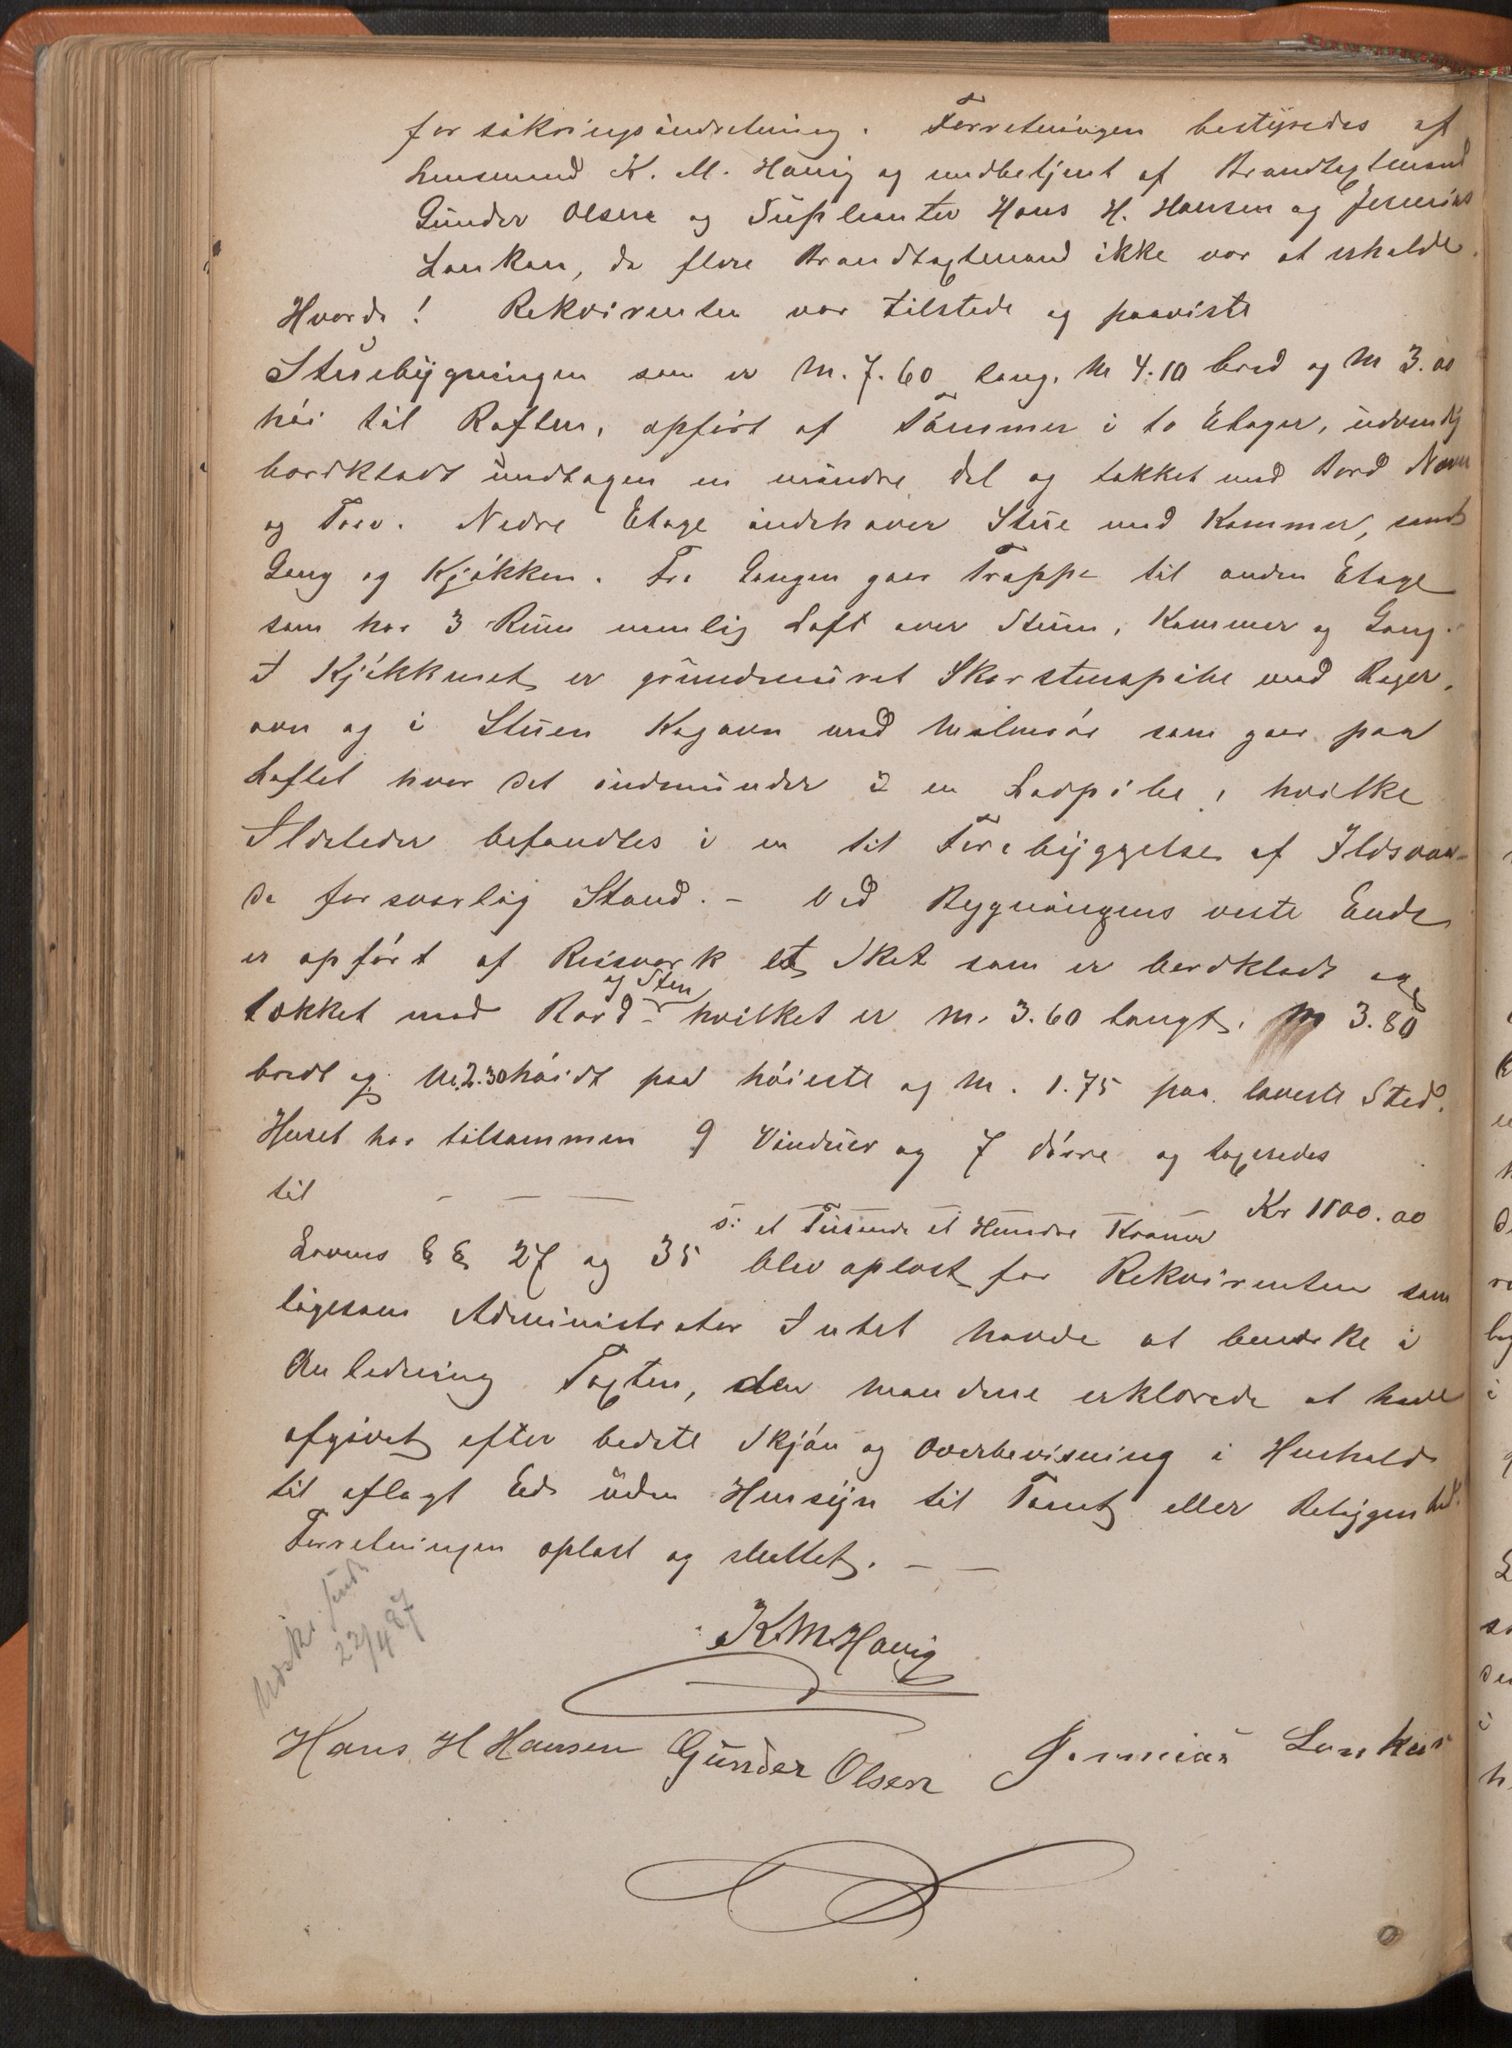 forsikringsindretning. Forretningen bestyredes af
Lensmand K. M. Hauig og medbetjent af Brandtagtmand
Gunder Olsen og Supleanter Hans H. Hansen og Jeremias
Lankan, da flere Brandtagtmænd ikke var at erholde.
Hvorda! Rekvirenten var tilstede og paaviste
Stuebygningen som er M. 7.60 lang, M 4.10 bred og M 3.00
høi til Raften, opført af Tømmer i to Etager, udvendig
bordklædt undtagen en mindre del og tækket med Bord Næver
og Torv. Nedre Etage indehaver Stue med Kammer, samt
Gang og Kjøkken. Fra Gangen gaar Trappe til anden Etage
som har 3 Rum nemlig Loft over Stuen, Kammer og Gang.
I Kjøkkenet er grundmuret Skorstenspibe med Koger,
ovn og i Stuen Kogovn med Malmrør som gaar paa
Loftet hvor det indmunder i en Ladpibe, hvilke
Ildsteder befandtes i en til Forebyggelse af Ildsvaa-
de forsvarlig Stand. – Ved Bygningens veste Ende
er opført af Reisverk et Skot som er bordklædt og
og Sten
tækket med Bord hvilket er M. 3.60 langt, M 3.80
bredt og M. 2.30 høidt paa høieste og M. 1.75 paa laveste Sted.
Huset har tilsammen 9 Vinduer og 7 dørre og taxeredes
til – – – – – – – Kr 1100.00
ɔ: et Tusinde et Hundre Kroner
Lovens §§ 27 og 35 blev oplæst for Rekvirenten som
ligesom Administrator Intet havde at bemærke i
Anledning Taxten, den mændene erklærede at have
afgivet efter bedste Skjøn og Overbevisning i Henhold
til aflagt Ed uden Hensyn til Tomt eller Beliggenhed.
Forretningen oplæst og sluttet. – –
Udskr. sendt
22/4 87
K. M. Hauig
Hans H Hansen Gunder Olsen Jeremias Lankan